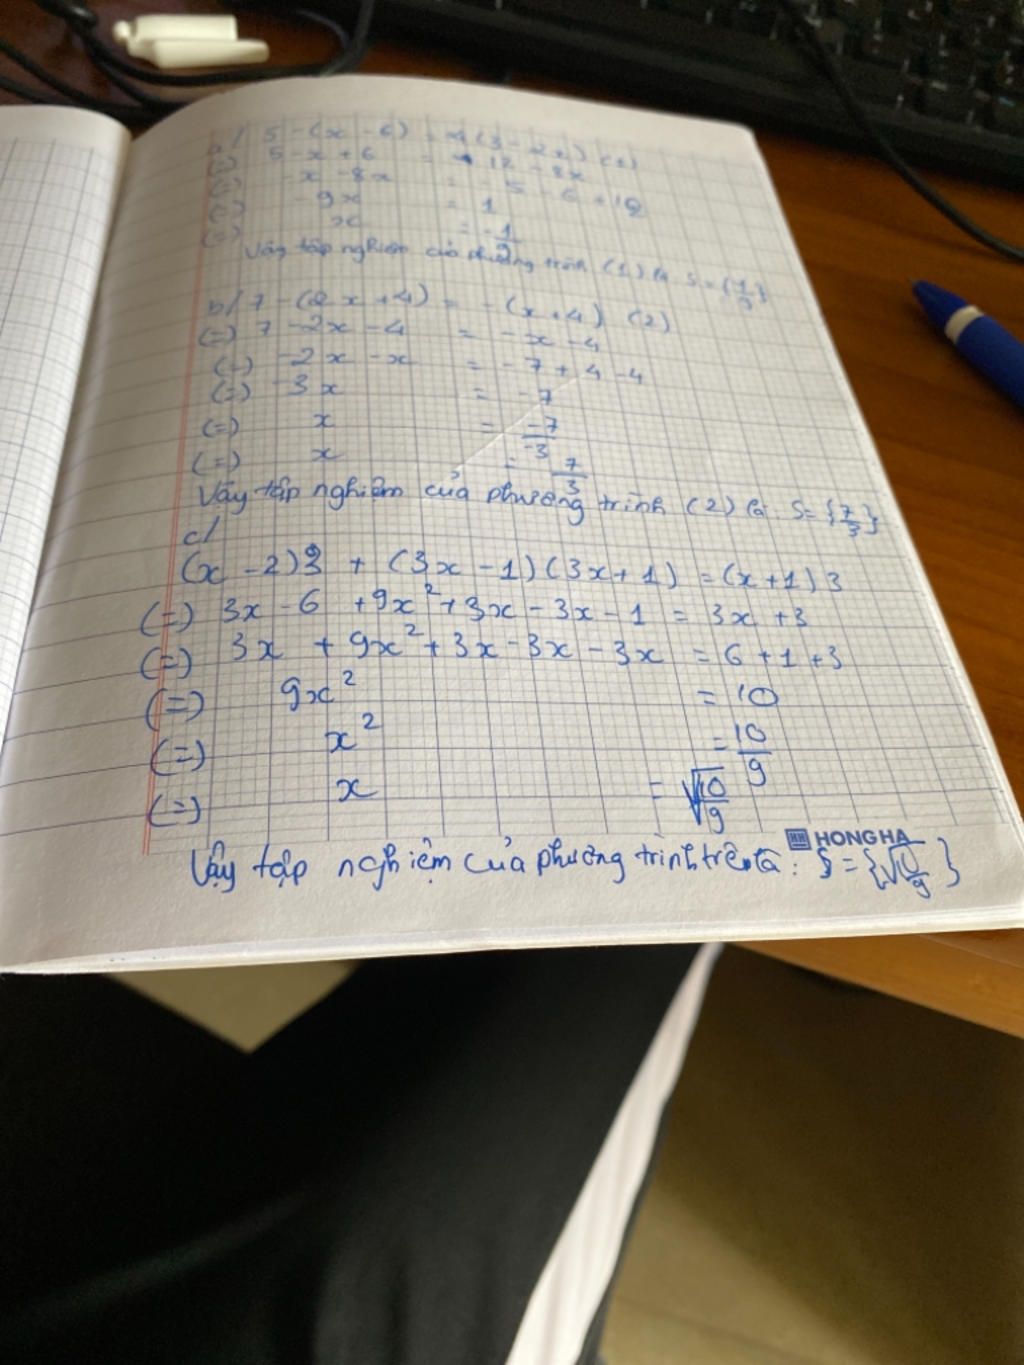 a/ 5 - (x - 6) = 4(3 - 2x) (1)
(=) 5 - x + 6 = 12 - 8x
(=) - x - 8x = - 5 - 6 + 12
(=) - 9x = 1
(=) x = -1/9
Vậy tập nghiệm của phương trình (1) là S = {1/9}
b/ 7 - (2x + 4) = - (x + 4) (2)
(=) 7 - 2x - 4 = - x - 4
(=) - 2x - x = - 7 + 4 - 4
(=) - 3x = - 7
(=) x = -7/-3
(=) x = 7/3
Vậy tập nghiệm của phương trình (2) là S = {7/3}
c/
(x - 2)3 + (3x - 1)(3x + 1) = (x + 1)3
(=) 3x - 6 + 9x² + 3x - 3x - 1 = 3x + 3
(=) 3x + 9x² + 3x - 3x - 3x = 6 + 1 + 3
(=) 9x² = 10
(=) x² = 10/9
(=) x = √10/9
HONG HA
Vậy tập nghiệm của phương trình trên là : S = {√10/9}